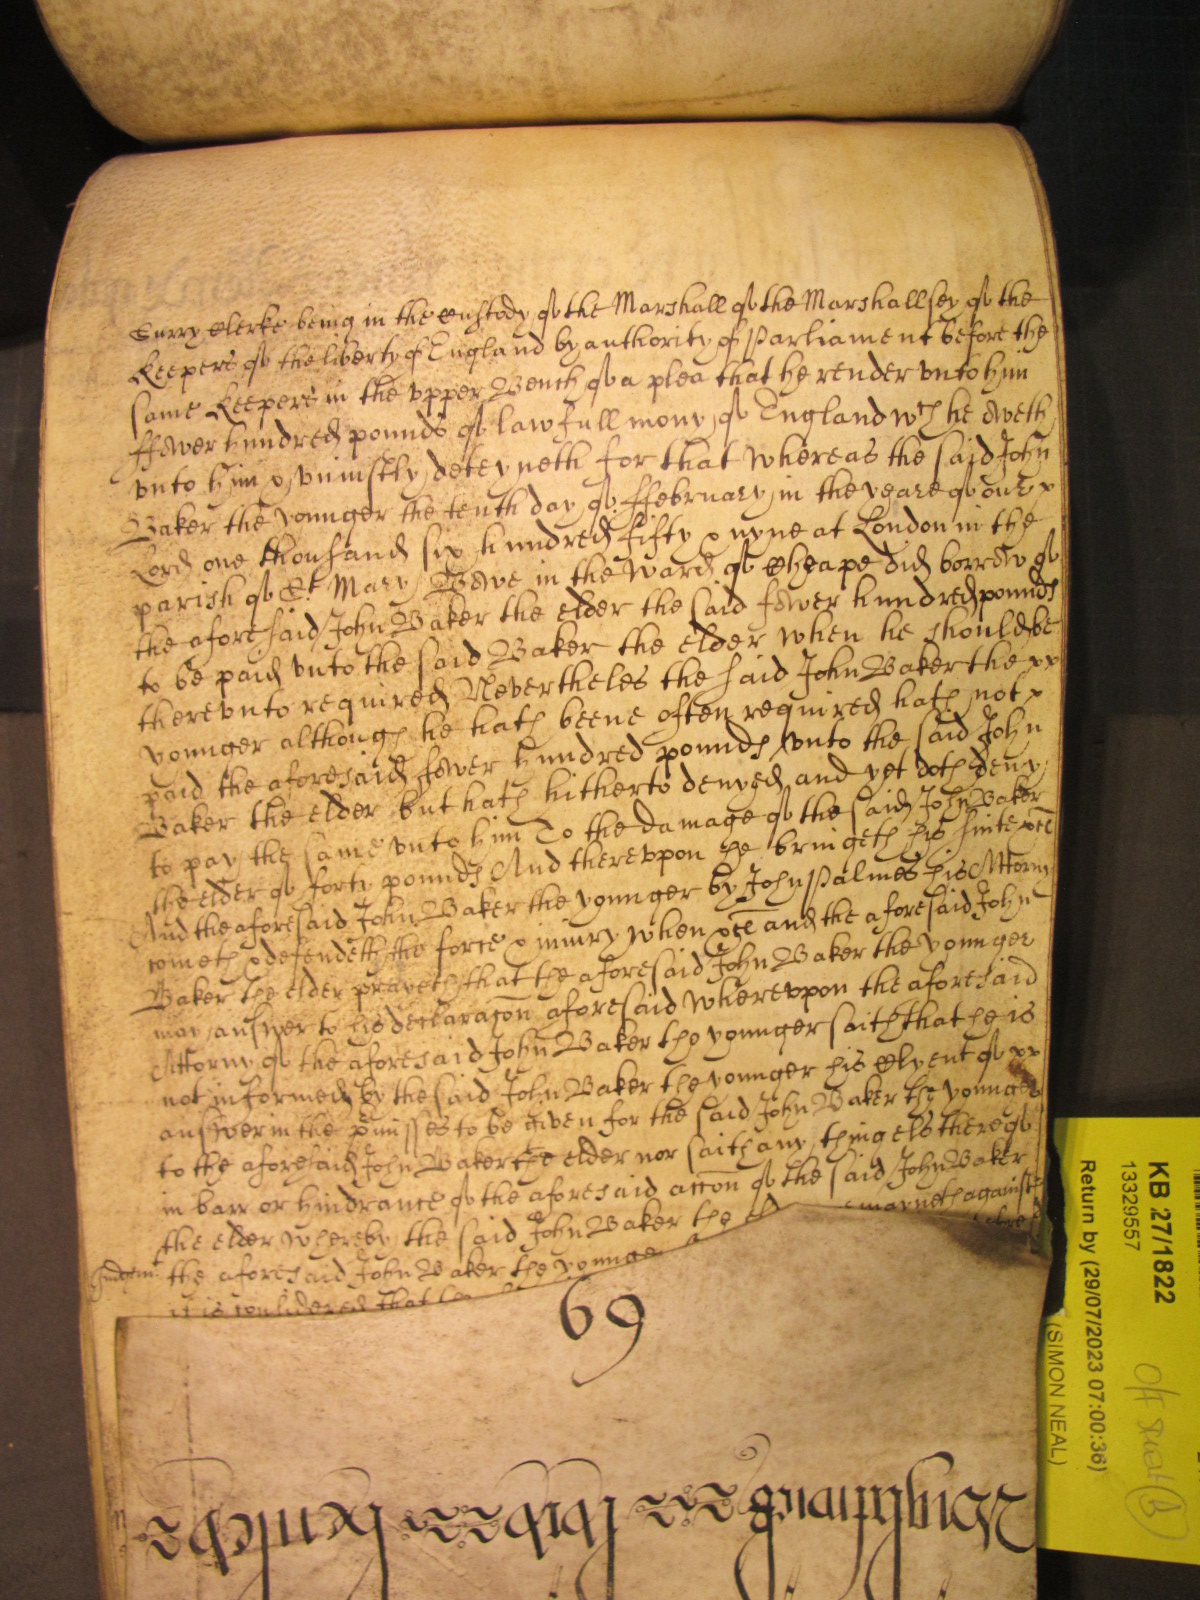 Surry Clerke being in the Custody of the Marshall of the Marshallsey of the
Keepers of the liberty of England by authority of Parliament before the
same Keepers in the vpper Bench of a plea that he render vnto him
ffower hundred pounds of lawfull mony of England wch he oweth
vnto him & vniustly deteyneth for that whereas the said John
Baker the younger the tenth day of ffebruary in the yeare of our x
Lord one thousand six hundred fifty & nyne at London in the
parish of St Mary Bowe in the Ward of Cheape did borrow of
the aforesaid John Baker the elder the said fower hundred pounds
to be paid vnto the said Baker the elder when he should be
therevnto required Nevertheles the said John Baker the xx
younger although he hath beene often required hath not x
paid the aforesaid fower hundred pounds vnto the said John
Baker the elder but hath hitherto denyed and yet doth deny
to pay the same vnto him To the damage of the said John Baker
the elder of forty pounds And therevpon he bringeth his suite &c
And the aforesaid John Baker the younger by John Palmes his Attorny
cometh & defendeth the force & iniury when &c and the aforesaid John
Baker the elder prayeth that the aforesaid John Baker the younger
may answer to his declaracon aforesaid Wherevpon the aforesaid
Attorny of the aforesaid John Baker the younger saith that he is
not informed by the said John Baker the younger his Clyent of xx
answer in the pmisses to be given for the said John Baker the younger
to the aforesaid John Baker the elder nor saith any thing els thereof
in barr or hindrance of the aforesaid accon of the said John Baker
the elder whereby the said John Baker the against
Judgmt the aforesaid John Baker the younge
it is considered that
69
KB 27/1822
13329557
Return by (29/07/2023 07:00:36)
(SIMON NEAL)